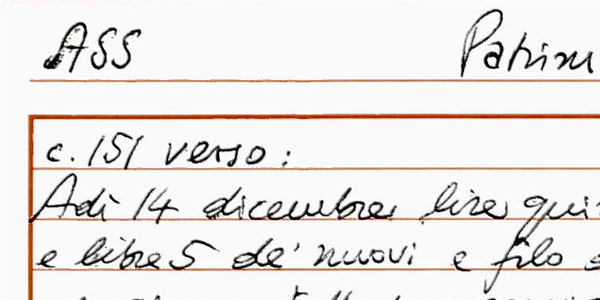 ASS
c. 151 verso:
Adì 14 dicembre lire
e libre 5 de' nuovi e filo